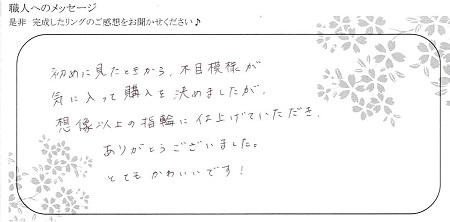 職人へのメッセージ
是非 完成したリングのご感想をお聞かせください♪
初めに見たときから、木目模様が
気に入って購入を決めましたが、
想像以上の指輪に仕上げていただき、
ありがとうございました。
とてもかわいいです!